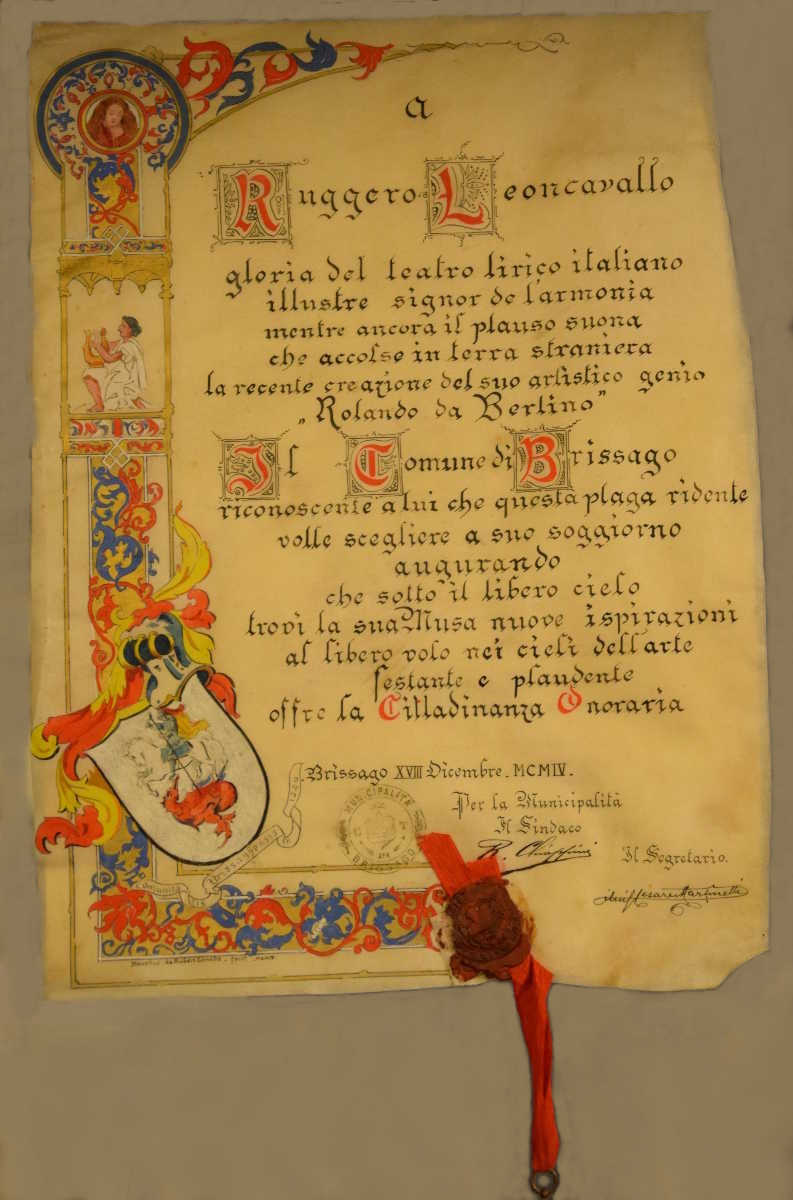 a
Ruggero Leoncavallo
gloria del teatro lirico italiano
illustre signor de l'armonia
mentre ancora il plauso suona
che accolse in terra straniera
la recente creazione del suo artistico genio
„Rolando da Berlino”
Il Comune di Brissago
riconoscente a lui che questa plaga ridente
volle scegliere a suo soggiorno
augurando
che sotto il libero cielo
trovi la sua Musa nuove ispirazioni
al libero volo nei cieli dell'arte
festante e plaudente
offre la Cittadinanza Onoraria
Brissago XVIII Dicembre. MCMIV.
Per la Municipalità
Il Sindaco
Il Segretario.
MUNICIPALITÀ
BRISSAGO